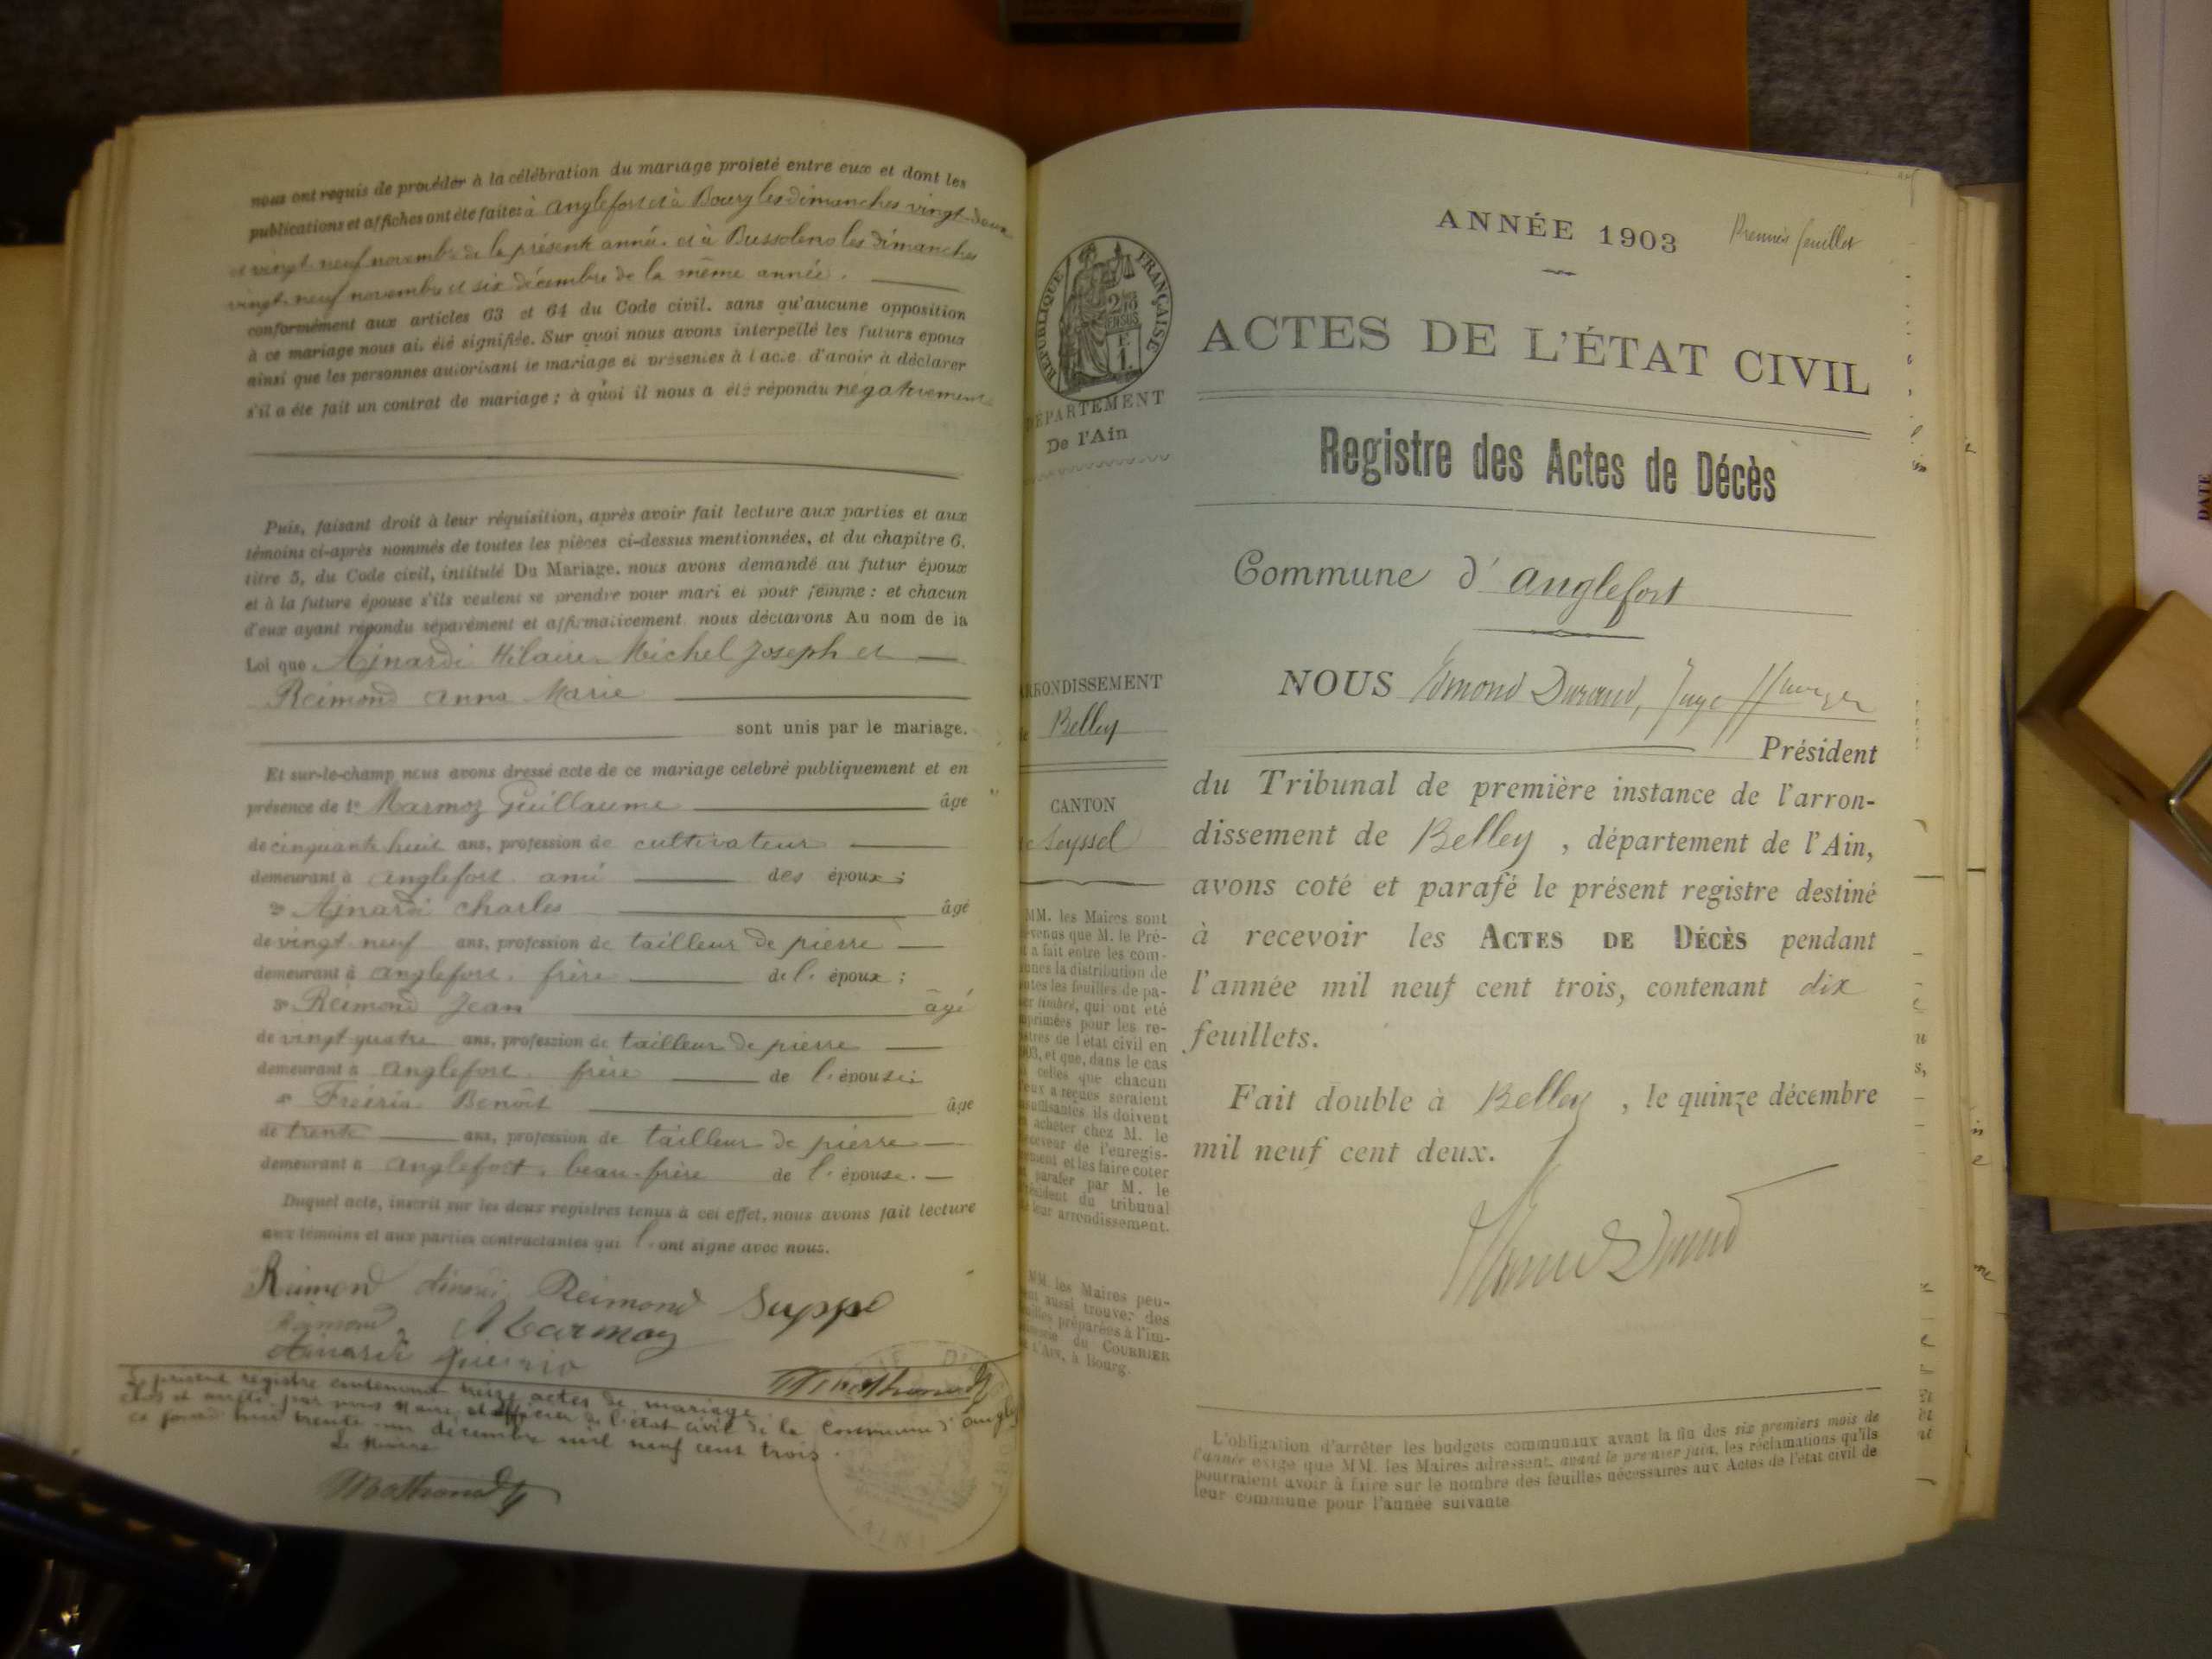 nous ont requis de procéder à la célébration du mariage projeté entre eux et dont les
publications et affiches ont été faites à Anglefort et à Bourg les dimanches vingt-deux
et vingt-neuf novembre de la présente année et à Bussoleno les dimanches
vingt-neuf novembre et six décembre de la même année.
conformément aux articles 63 et 64 du Code civil. sans qu'aucune opposition
à ce mariage nous ait été signifiée. Sur quoi nous avons interpellé les futurs époux
ainsi que les personnes autorisant le mariage et présentes à l'acte d'avoir à déclarer
s'il a été fait un contrat de mariage ; à quoi il nous a été répondu négativement
Puis, faisant droit à leur réquisition, après avoir fait lecture aux parties et aux
témoins ci-après nommés de toutes les pièces ci-dessus mentionnées, et du chapitre 6,
titre 5, du Code civil, intitulé Du Mariage, nous avons demandé au futur époux
et à la future épouse s'ils veulent se prendre pour mari et pour femme : et chacun
d'eux ayant répondu séparément et affirmativement nous déclarons Au nom de la
Loi que Ainardi Hilaire Michel Joseph et
Reimond Anna Marie
sont unis par le mariage.
Et sur-le-champ nous avons dressé acte de ce mariage célébré publiquement et en
présence de 1º Marmoz Guillaume âgé
de cinquante huit ans, profession de cultivateur
demeurant à Anglefort ami des époux ;
2º Ainardi Charles âgé
de vingt neuf ans, profession de tailleur de pierre
demeurant à Anglefort, frère de l' époux ;
3º Reimond Jean âgé
de vingt quatre ans, profession de tailleur de pierre
demeurant à Anglefort, frère de l' épouse ;
4º Benoît âgé
de trente ans, profession de tailleur de pierre
demeurant à Anglefort, beau-frère de l' épouse.
Duquel acte, inscrit sur les deux registres tenus à cet effet, nous avons fait lecture
aux témoins et aux parties contractantes qui l' ont signé avec nous.
Reimond Ainardi Reimond Suppo
Reimond Marmoz
Ainardi
Le présent registre contenant treize actes de mariage
clos et arrêté par nous Maire et officier de l'état civil de la Commune d'Anglefort
ce jourd'hui trente-un décembre mil neuf cent trois.
Le Maire
ANNÉE 1903
Premier feuillet
RÉPUBLIQUE FRANÇAISE
ACTES DE L'ÉTAT CIVIL
DÉPARTEMENT
De l'Ain
Registre des Actes de Décès
Commune d' Anglefort
ARRONDISSEMENT
de Belley
CANTON
de Seyssel
NOUS Edmond Durand, Juge
Président
du Tribunal de première instance de l'arron-
dissement de Belley , département de l'Ain,
avons coté et parafé le présent registre destiné
à recevoir les ACTES DE DÉCÈS pendant
l'année mil neuf cent trois, contenant dix
feuillets.
Fait double à Belley , le quinze décembre
mil neuf cent deux.
Edmond Durand
MM. les Maires sont
prévenus que M. le Pré-
fet a fait entre les com-
munes la distribution de
toutes les feuilles de pa-
pier timbré, qui ont été
imprimées pour les re-
gistres de l'état civil en
1903, et que, dans le cas
où celles que chacun
d'eux a reçues seraient
insuffisantes ils doivent
en acheter chez M. le
Receveur de l'enregis-
trement et les faire coter
et parafer par M. le
Président du tribunal
de leur arrondissement.
MM. les Maires peu-
vent aussi trouver des
feuilles préparées à l'im-
primerie du COURRIER
DE L'AIN, à Bourg.
L'obligation d'arrêter les budgets communaux avant la fin des six premiers mois de
l'année exige que MM. les Maires adressent, avant le premier juin, les réclamations qu'ils
pourraient avoir à faire sur le nombre des feuilles nécessaires aux Actes de l'état civil de
leur commune pour l'année suivante
DATE